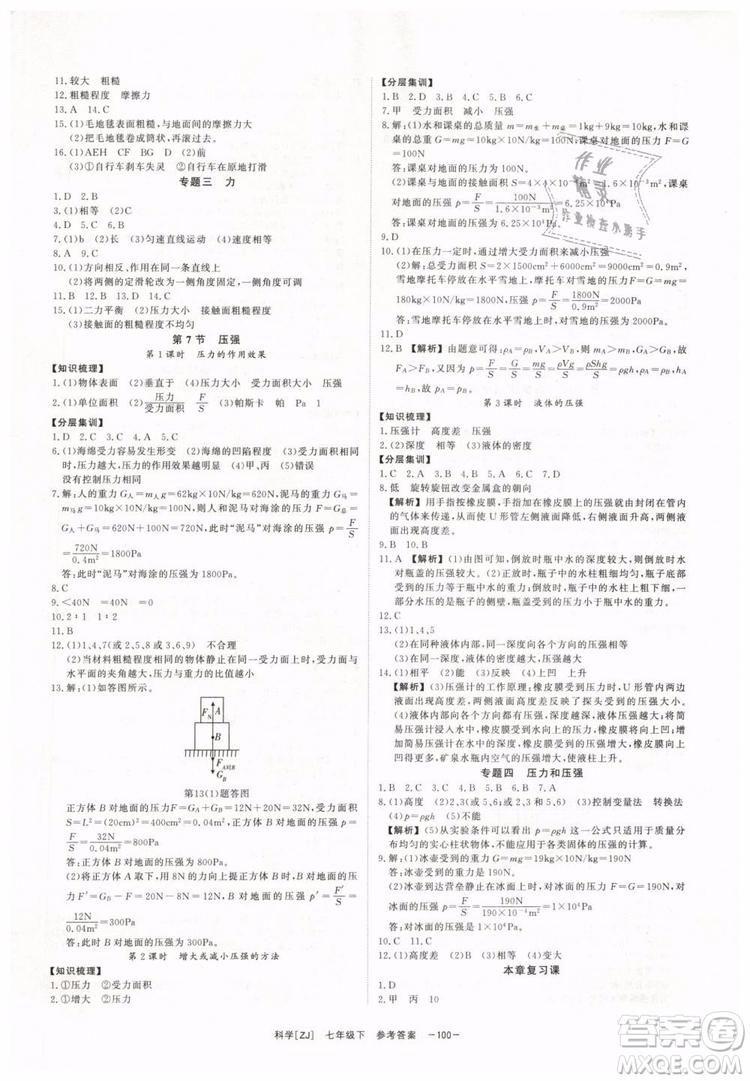 11.较大 粗糙
12.粗糙程度 摩擦力
13.A 14.C
15.(1)毛地毯表面粗糙,与地面间的摩擦大
(2)把毛地毯卷成筒状,再滚动
16.(1)AEH CF BG D (2)B
(3)①自行车刹车失灵 ②自行车在地面打滑
专题三 力
1.D 2.B
3.(1)相等 (2)C
4.D 5.D 6.C
7.(1)b (2)长 (3)匀速直线运动
8.D 9.D
10.(1)方向相反,作用在同一条直线上
(2)将两侧的定滑轮改为一侧角度固定,一侧角度可调节
11.B 12.B 13.D 14.C
15.(1)二力平衡 (2)大小 接触面粗糙程度
(3)接触面的粗糙程度不均匀
第7节 压强
第1课时 压力的作用效果
【知识梳理】
1.(1)物体表面 (2)垂直于 (4)接触面
2.(1)单位面积 (2)压力/受力面积 F/S (3)帕斯卡 帕 Pa 1
【分层集训】
1.D 2.C 3.D 4.B 5.C
6.(1)海绵受力容易发生形变 (2)海绵的凹陷程度 (3)相同 压力越大,压力的作用效果越明显 (4)乙、丙 (5)错误
没有控制压力相同
7.解:人的重力G人=m人g=62kg×10N/kg=620N,泥马的重力G马=m马g=10kg×10N/kg=100N,则人和泥马对海涂的压力F=G总=G人+G马=620N+100N=720N,此时“泥马”对海涂的压强p=F/S
=720N/0.4m²=1800Pa
答:此时“泥马”对海涂的压强是1800Pa。
8.C
9.<40N =0 =40N
10.2∶1∶2
11.B
12.(1)1、4、7(或2、5、8或3、6、9) 不合理
(2)当材料粗糙程度相同的物体静止在同一受力面上时,受力面受到的压力与重力的比值越小
13.解:(1)如答图。
FN A
B
FA对B
GB
第13(1)题答图
正方体B对地面的压力F=GA+GB=12N+20N=32N,受力面积S=L²=(20cm)²=400cm²=0.04m²,正方体B对地面的压强p=F/S
=32N/0.04m²=800Pa
答:正方体B对地面的压强为800Pa。
(2)将正方体A取下,用一竖直向上的力提B,则B对地面的压力F′=GB-F=20N-8N=12N,此时B对地面的压强p′=F′/S=
12N/0.04m²=300Pa
答:此时B对地面的压强为300Pa。
第2课时 增大或减小压强的方法
【知识梳理】
1.(1)增大 (2)压力 受力面积
2.(1)增大 (2)压力 受力面积
【分层集训】
1.B 2.D 3.C 4.D 5.C 6.B
7.甲 受力面积 减小 压强
8.解:(1)水和课桌的总质量m=m水+m桌=1kg+9kg=10kg,因为课桌在水平地面上,所以课桌对地面的压力F=G=mg=10kg×10N/kg=100N
答:课桌对地面的压力为100N。
(2)课桌与地面的受力面积S=4×400mm²=1.6×10⁻³m²,课桌对地面的压强p=F/S=100N/1.6×10⁻³m²=6.25×10⁴Pa
答:课桌对地面的压强为6.25×10⁴Pa。
9.D
10.(1)压力一定时,通过增大受力面积来减小压强
(2)解:总受力面积S=2×1500cm²+6000cm²=9000cm²=0.9m²,雪地摩托车停放在水平雪地上时,摩托车对雪地的压力F=G=mg=180kg×10N/kg=1800N,对雪地的压强p=F/S=1800N/0.9m²=2000Pa
答:雪地摩托车停放在水平雪地上时,对雪地的压强为2000Pa。
11.D
12.B 【解析】由题意可得,因为ρA=ρB,VA>VB,G=ρVg,F=G,所以FA>FB;又因为p=F/S=G/S=mg/S=ρVg/S=ρShg/S=ρgh,hA<hB,所以pA<pB,故选B。
第3课时 液体的压强
【知识梳理】
1.压强计 高度差 压强
2.(2)深度 相等 (3)液体的密度
【分层集训】
1.C 2.D 3.A 4.D 5.C 6.D 7.C
8.低 旋转旋钮改变金属盒的朝向
【解析】用手指按橡皮膜,手指加在橡皮膜上的压强就由封闭在管内的气体来传递,以致使U形管左侧液面下降,右侧液面上升,出现高度差。
9.B 10.B
11.A 【解析】由图可知,倒放时瓶中水的深度较大,所以倒放时水对瓶盖的压强增大;正放时,瓶子中水柱粗细相同均匀,对瓶底的压力等于瓶中水的重力;倒放时,瓶子中的水柱上粗下细,一部分水压的是瓶子的侧壁,瓶盖受到的压力小于水的重力。
12.C
13.(1)1、4、5
(2)在同种液体内部,深度越大,液体的压强越大
(3)在同一深度,液体密度越大,压强越大
14.(1)相平 (2)能 (3)反映 (4)上凹 (5)上凹
【解析】(3)压强计的工作原理:橡皮膜受到压力时,U形管内两边液面出现高度差,两边高度差反映了探头受到的压强大小。(4)将简易压强计浸入水中,橡皮膜受到水向上的压强,所以橡皮膜向上凹陷。(5)盐水的密度大于水的密度,橡皮膜受到盐水的压强增大,矿泉水瓶内气体压强增大,故橡皮膜向上凹。
专题四 压力和压强
1.B 2.C 3.C 4.B 5.C 6.C 7.C
8.(1)高度 (2)2,3(或5,6) (3)控制变量 转换法
(4)根据实验条件可以使用p=ρgh
【解析】(5)从实验条件可以看出p=ρgh这一公式只适用于质量分布均匀的实心柱状物体,不能应用于各类固体的压强计算。
9.解:(1)冰壶受到的重力G=mg=19kg×10N/kg=190N
答:冰壶受到的重力为190N。
(2)冰壶到达营垒静止时,冰壶对冰面的压力F=G=190N,对冰面的压强p=F/S=190N/190×10⁻⁴m²=1×10⁴Pa
答:对冰面的压强为1×10⁴Pa。
10.C 11.C
12.(1)高度差 (2)4 (3)相等 (4)变大
本章复习课
1.D
2.甲 丙 10
科学[ZJ] 七年级下 参考答案 —100—
作业精灵
作业检查小助手
答案圈
MXQE.COM